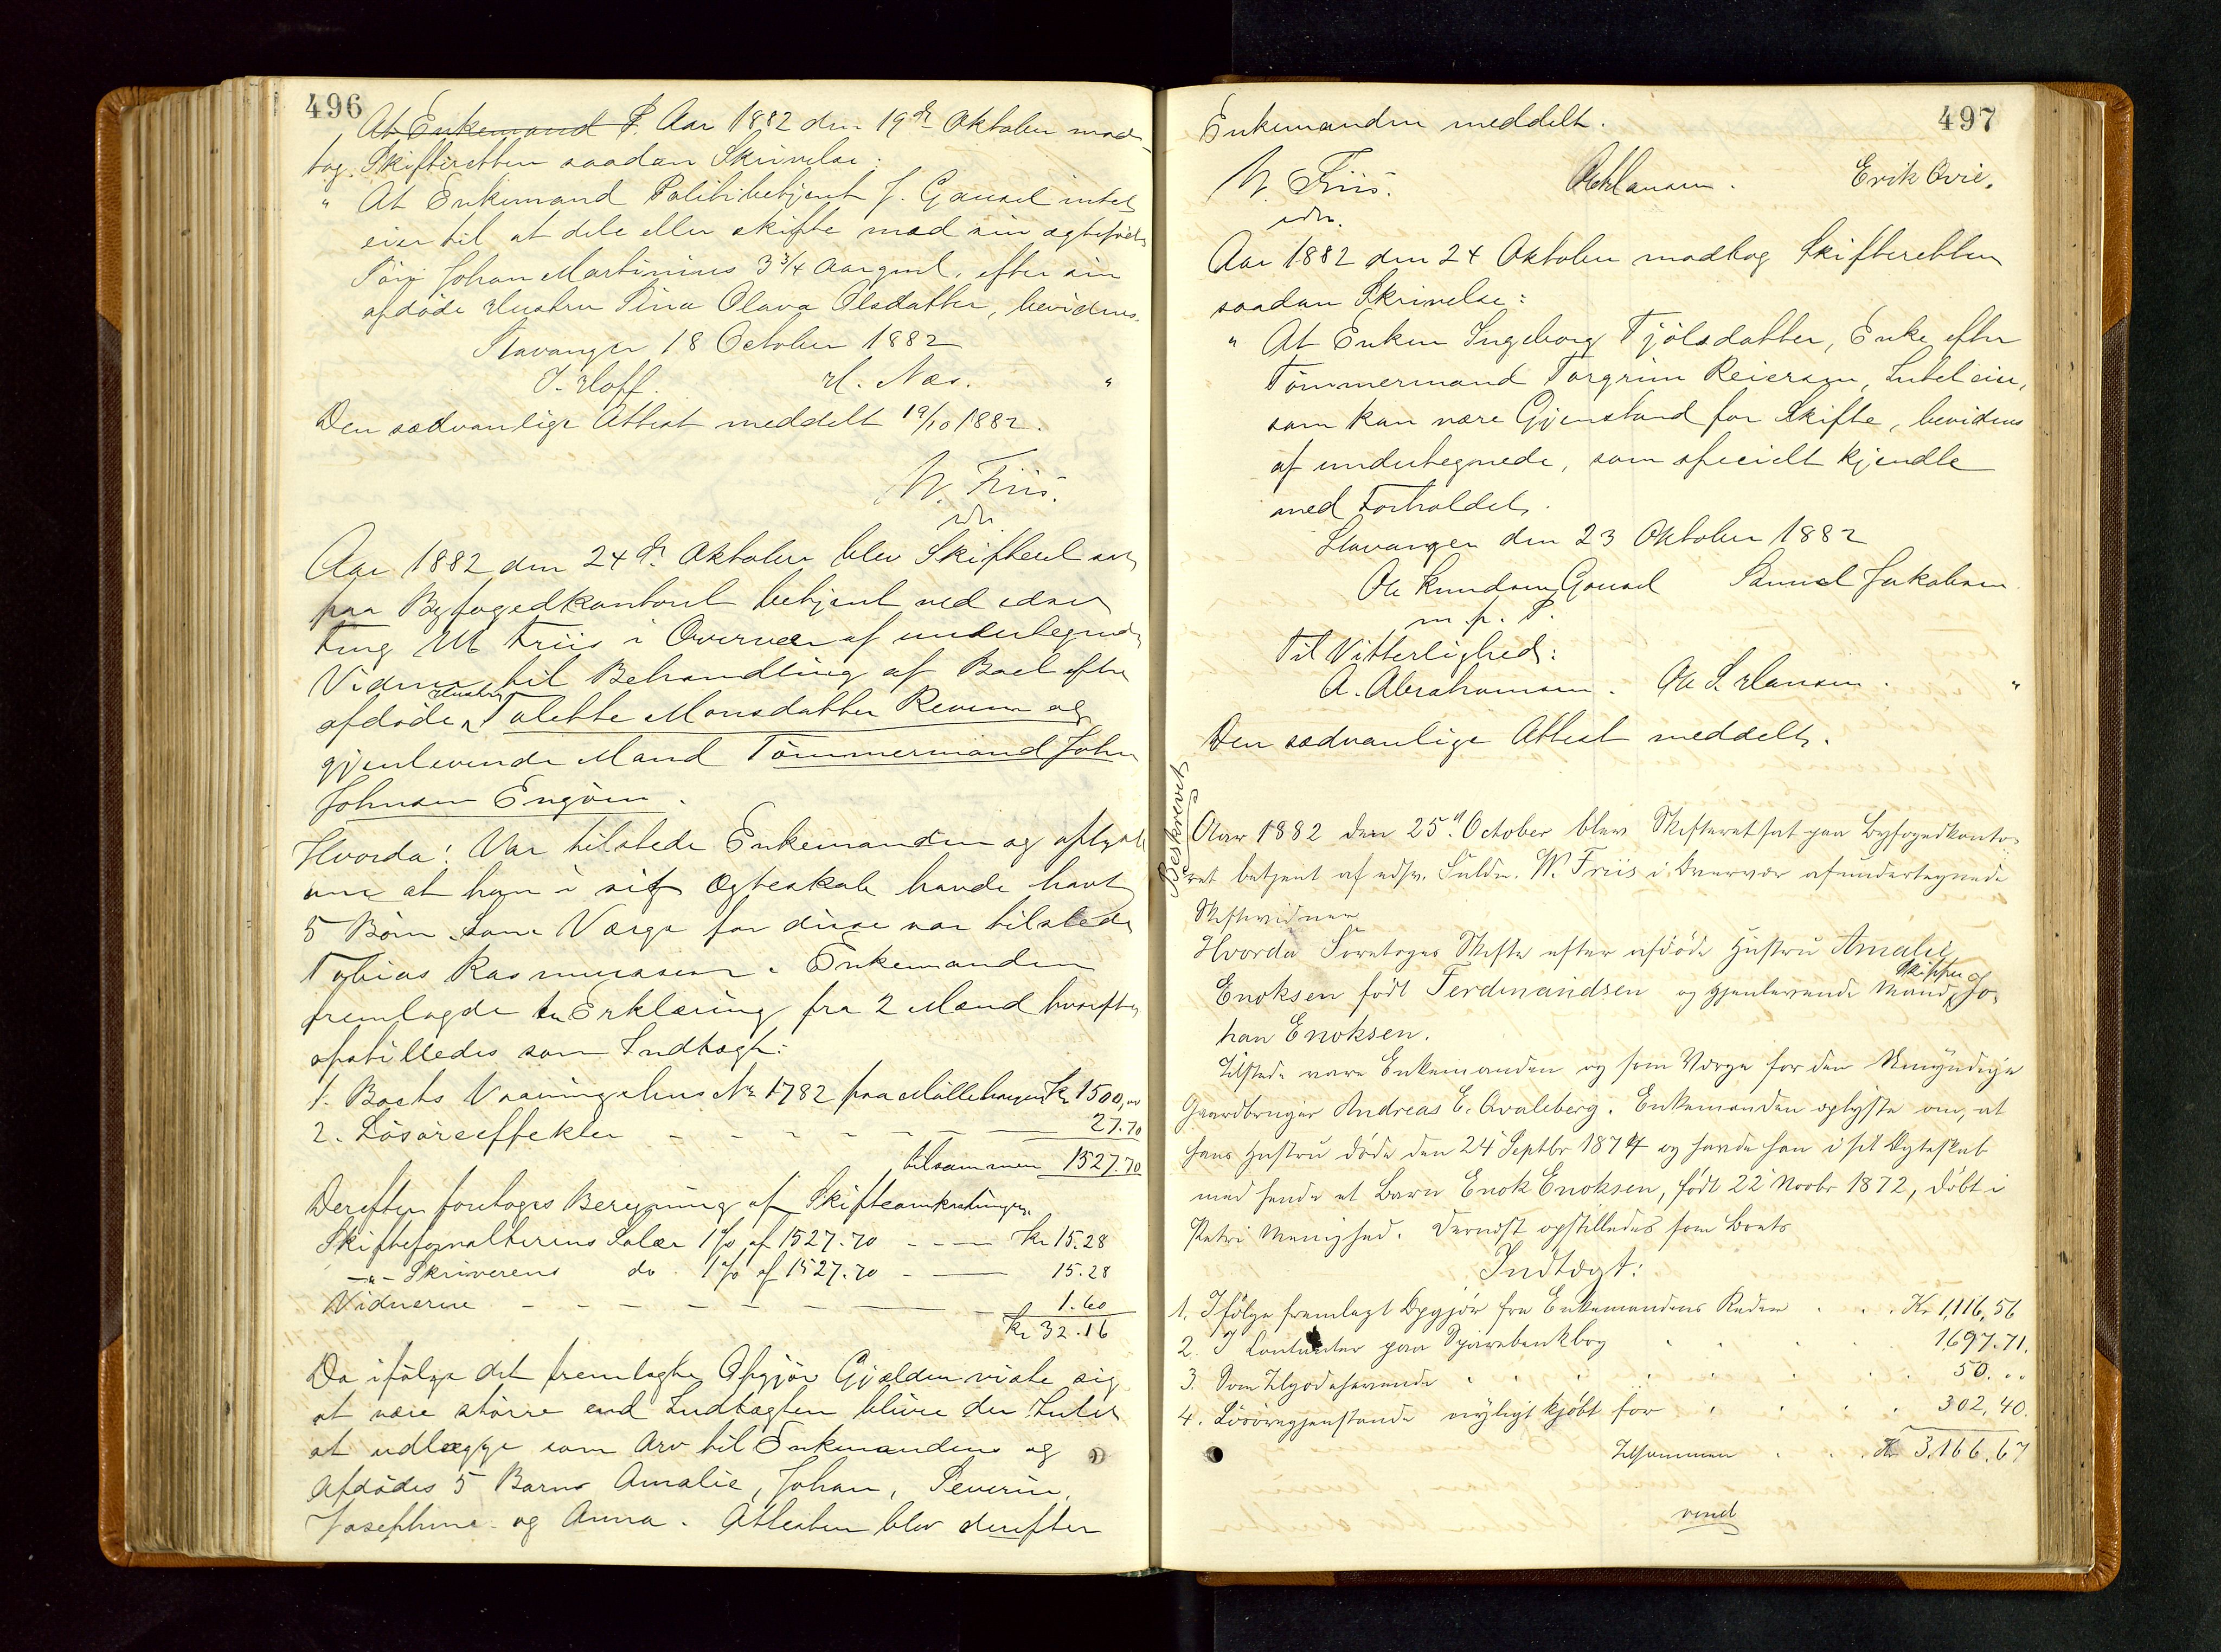 496
At Enkemand P. Aar 1882 den 19de Oktober mod-
tog Skifteretten saadan Skrivelse:
" At Enkemand Politibetjent J. Gausel intet
eier til at dele eller skifte med sin ægtefødte
Søn Johan Martinius 3 3/4 Aar gml. efter sin
afdøde Hustru Sina Olava Olsdatter, bevidnes.
Stavanger 18 October 1882
J. Hoff. H. Næs. "
Den sædvanlige Attest meddelt 19/10 1882.
W. Friis.
edv.
Aar 1882 den 24de Oktober blev Skifteret sat
paa Byfogedkontoret betjent ved edsv
W Friis i Overvær af undertegnede
Vidner til Behandling af Boet efter
afdøde Hustru Tolette Monsdatter Revem og
gjenlevende Mand Tømmermand John
Johnsen Engøen.
Hvorda! Var tilstede Enkemanden og oplyste
at han i sit Ægteskab havde havt
5 Børn. Som Værge for disse var tilstede
Tobias Rasmussen. Enkemanden
fremlagde en Erklæring fra 2 Mænd hvorefter
opstilledes som Indtægt:
1. Boets Vaaningshus No 1782 paa Møllehaugen Kr 1500,00
2. Løsøreeffekter - - - - 27.70
tilsammen 1527.70
Derefter foretoges Beregning af Skifteomkostninger.
Skifteforvalterens Salær 1% af 1527.70 - - - Kr 15.28
-"- Skriverens do. 1% af 1527.70 - - 15.28
Vidnerne - - - - - 1.60
Kr 32.16
Da ifølge det fremlagte Opgjør Gjælden viste sig
at være større end Indtægten bliver der Intet
at udlægge som Arv til Enkemanden og
Afdødes 5 Børn Amalie, Johan, Severin,
Josephine og Anna. Attesten blev derefter
497
Enkemanden meddelt.
W. Friis. OHansen. Erik Qvie.
edv.
Aar 1882 den 24 Oktober modtog Skifteretten
saadan Skrivelse:
" At Enken Ingeborg Tjølsdatter, Enke efter
Tømmermand Torgrim Reiersen, Intet eier,
som kan være Gjenstand for Skifte, bevidnes
af undertegnede, som specielt kjendte
med Forholdet.
Stavanger den 23 Oktober 1882
Ole Knudsen Gausel Samuel Jakobsen
m. p. P.
Til Vitterlighed:
A. Abrahamsen. Ole S. Hansen. "
Den sædvanlige Attest meddelt.
Beskrevet
Aar 1882 den 25de October blev Skifteret sat paa Byfogedkonto-
ret betjent af edsv. Fuldm. W. Friis i Overvær af undertegnede
Skiftevidner
Hvorda Foretoges Skifte efter afdøde Hustru Amalie
Enoksen født Ferdinandsen og gjenlevende Mand, Skipper Jo-
han Enoksen.
Tilstede vare Enkemanden og som Værge for den Umyndige
Gaardbruger Andreas E. Qvaleberg. Enkemanden oplyste om, at
hans Hustru døde den 24 Septbr 1874 og havde han i sit Ægteskab
med hende et Barn Enok Enoksen, født 22 Novbr 1872, døbt i
Petri Menighed. Dernæst opstilledes som Boets
Indtægt:
1. Ifølge fremlagt Opgjør fra Enkemandens Reder . . . Kr 1,116,56
2. I Contanter paa Sparebankbog . . . 1697.71.
3. Som Tilgodehavende . . . 50. "
4. Løsøregjenstande nyligt kjøbt for . . . 302,40.
Tilsammen . . . Kr 3,166.67
vend